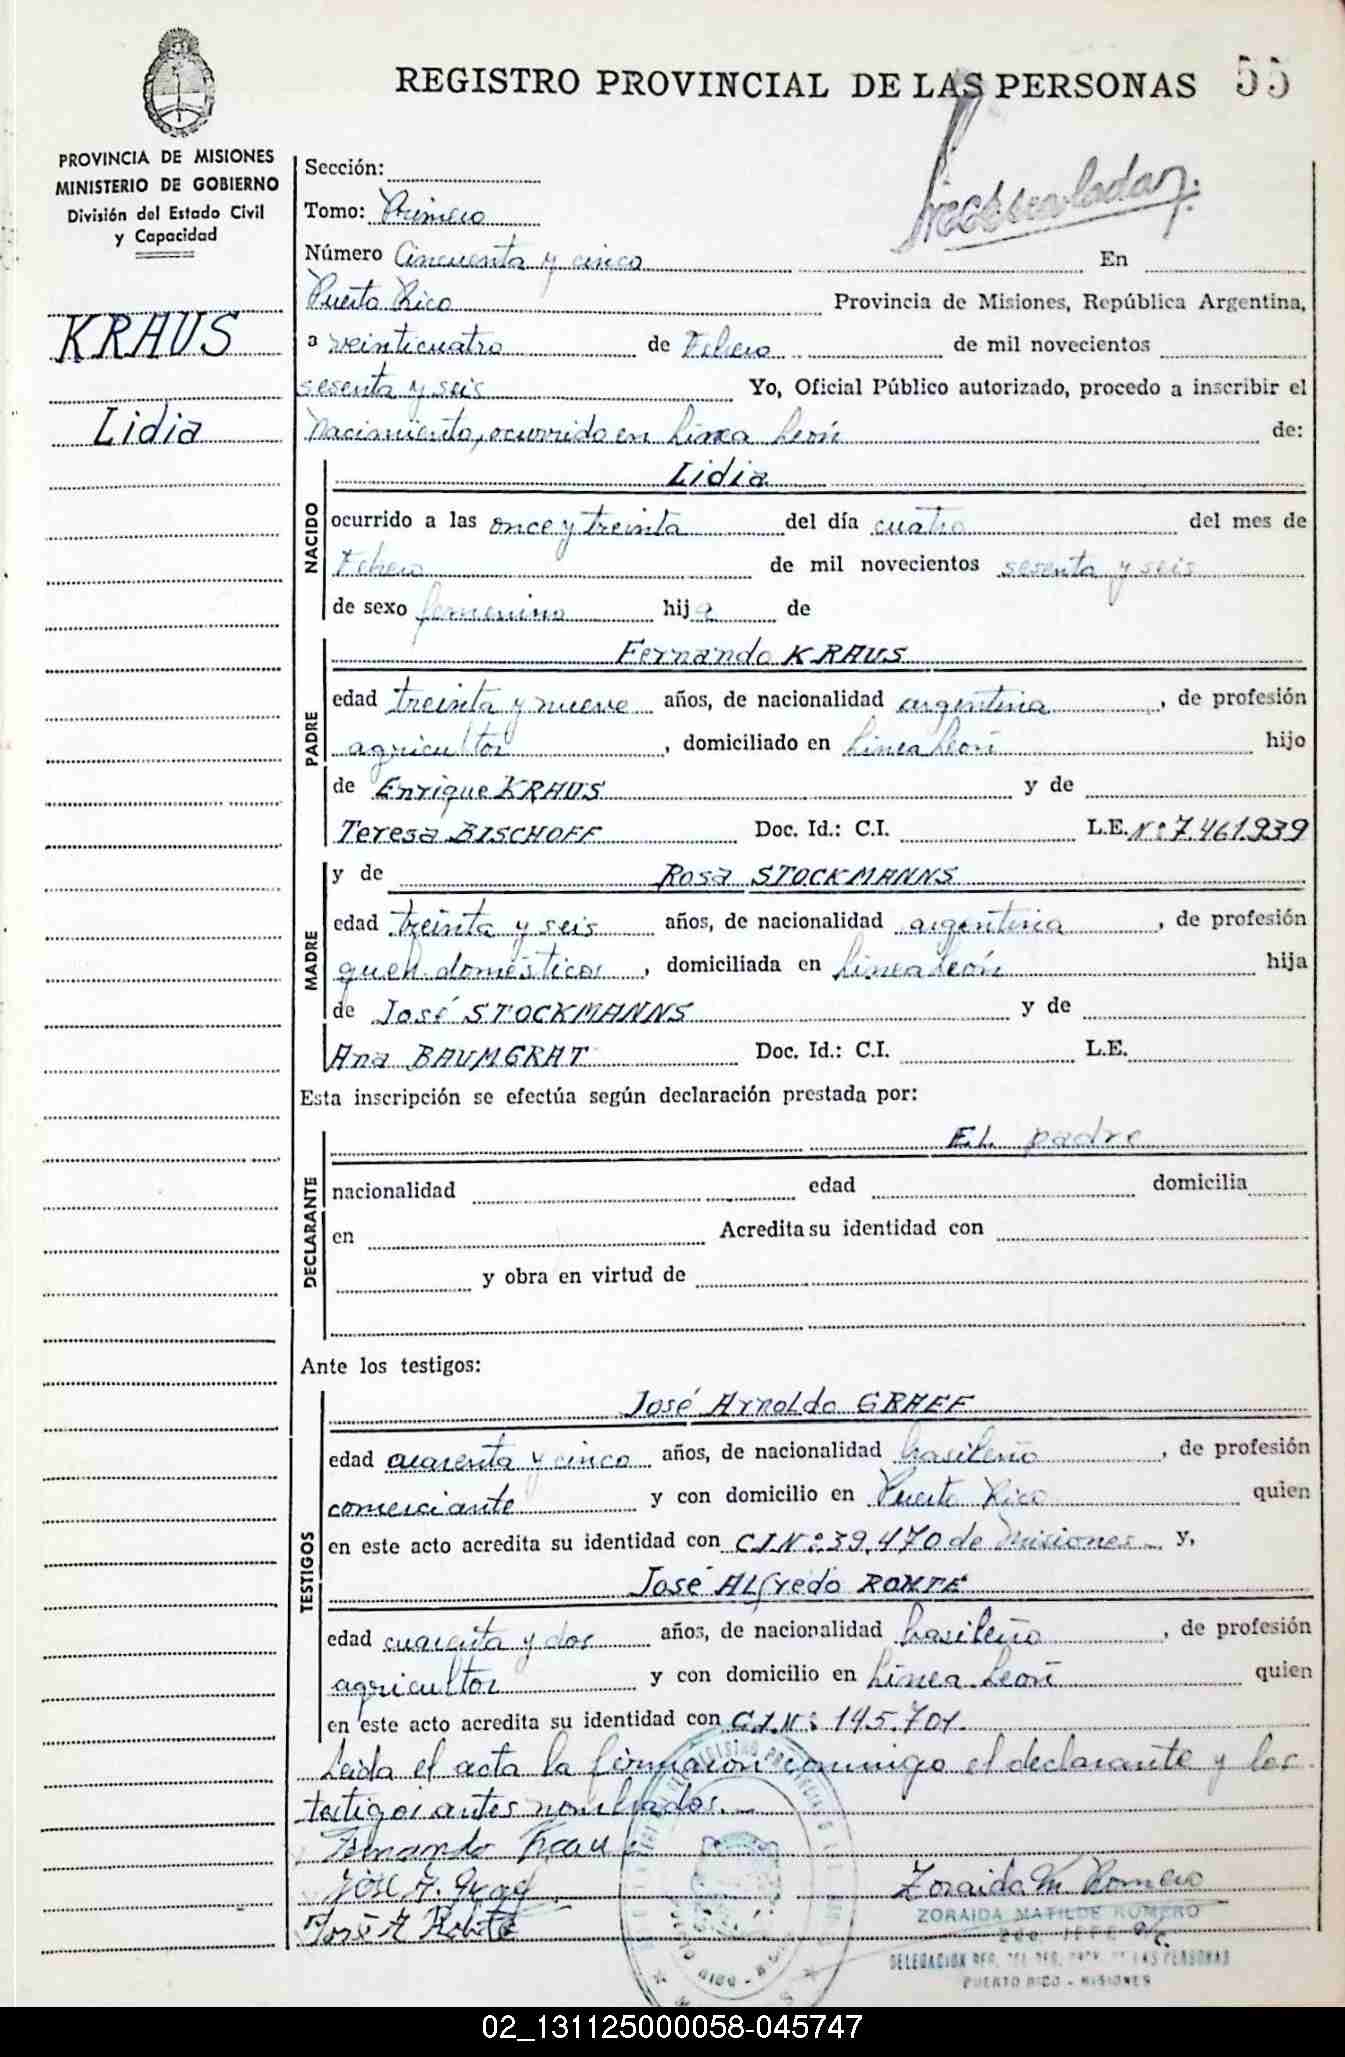 REGISTRO PROVINCIAL DE LAS PERSONAS 55
PROVINCIA DE MISIONES
MINISTERIO DE GOBIERNO
División del Estado Civil
y Capacidad
KRAUS
Lidia
Sección:
Tomo: Primero
Número Cincuenta y cinco En
Puerto Rico Provincia de Misiones, República Argentina,
a veinticuatro de Febrero de mil novecientos
sesenta y seis Yo, Oficial Público autorizado, procedo a inscribir el
Nacimiento, ocurrido en Linea León de:
NACIDO
Lidia
ocurrido a las once y treinta del día cuatro del mes de
Febrero de mil novecientos sesenta y seis
de sexo femenino hija de
PADRE
Fernando KRAUS
edad treinta y nueve años, de nacionalidad argentina, de profesión
agricultor, domiciliado en Linea León hijo
de Enrique KRAUS y de
Teresa BISCHOFF Doc. Id.: C.I. L.E. Nº: 7.461.939
MADRE
y de Rosa STOCKMANNS
edad treinta y seis años, de nacionalidad argentina, de profesión
queh. domésticos, domiciliada en Linea León hija
de José STOCKMANNS y de
Ana BAUMGRAT Doc. Id.: C.I. L.E.
Esta inscripción se efectúa según declaración prestada por:
DECLARANTE
EL padre
nacionalidad edad domicilia
en Acredita su identidad con
y obra en virtud de
Ante los testigos:
TESTIGOS
José Arnoldo GRAEF
edad cuarenta y cinco años, de nacionalidad brasileño, de profesión
comerciante y con domicilio en Puerto Rico quien
en este acto acredita su identidad con C.I.Nº: 39.470 de Misiones y,
José ALfredo
edad cuarenta y dos años, de nacionalidad brasileño, de profesión
agricultor y con domicilio en Linea León quien
en este acto acredita su identidad con C.I.Nº: 145.701.
Leida el acta la firmaron conmigo el declarante y los
testigos antes nombrados.
Fernando Kraus
José A.
José A
Zoraida M Romero
ZORAIDA MATILDE ROMERO
JEFE
PUERTO RICO - MISIONES
02_131125000058-045747